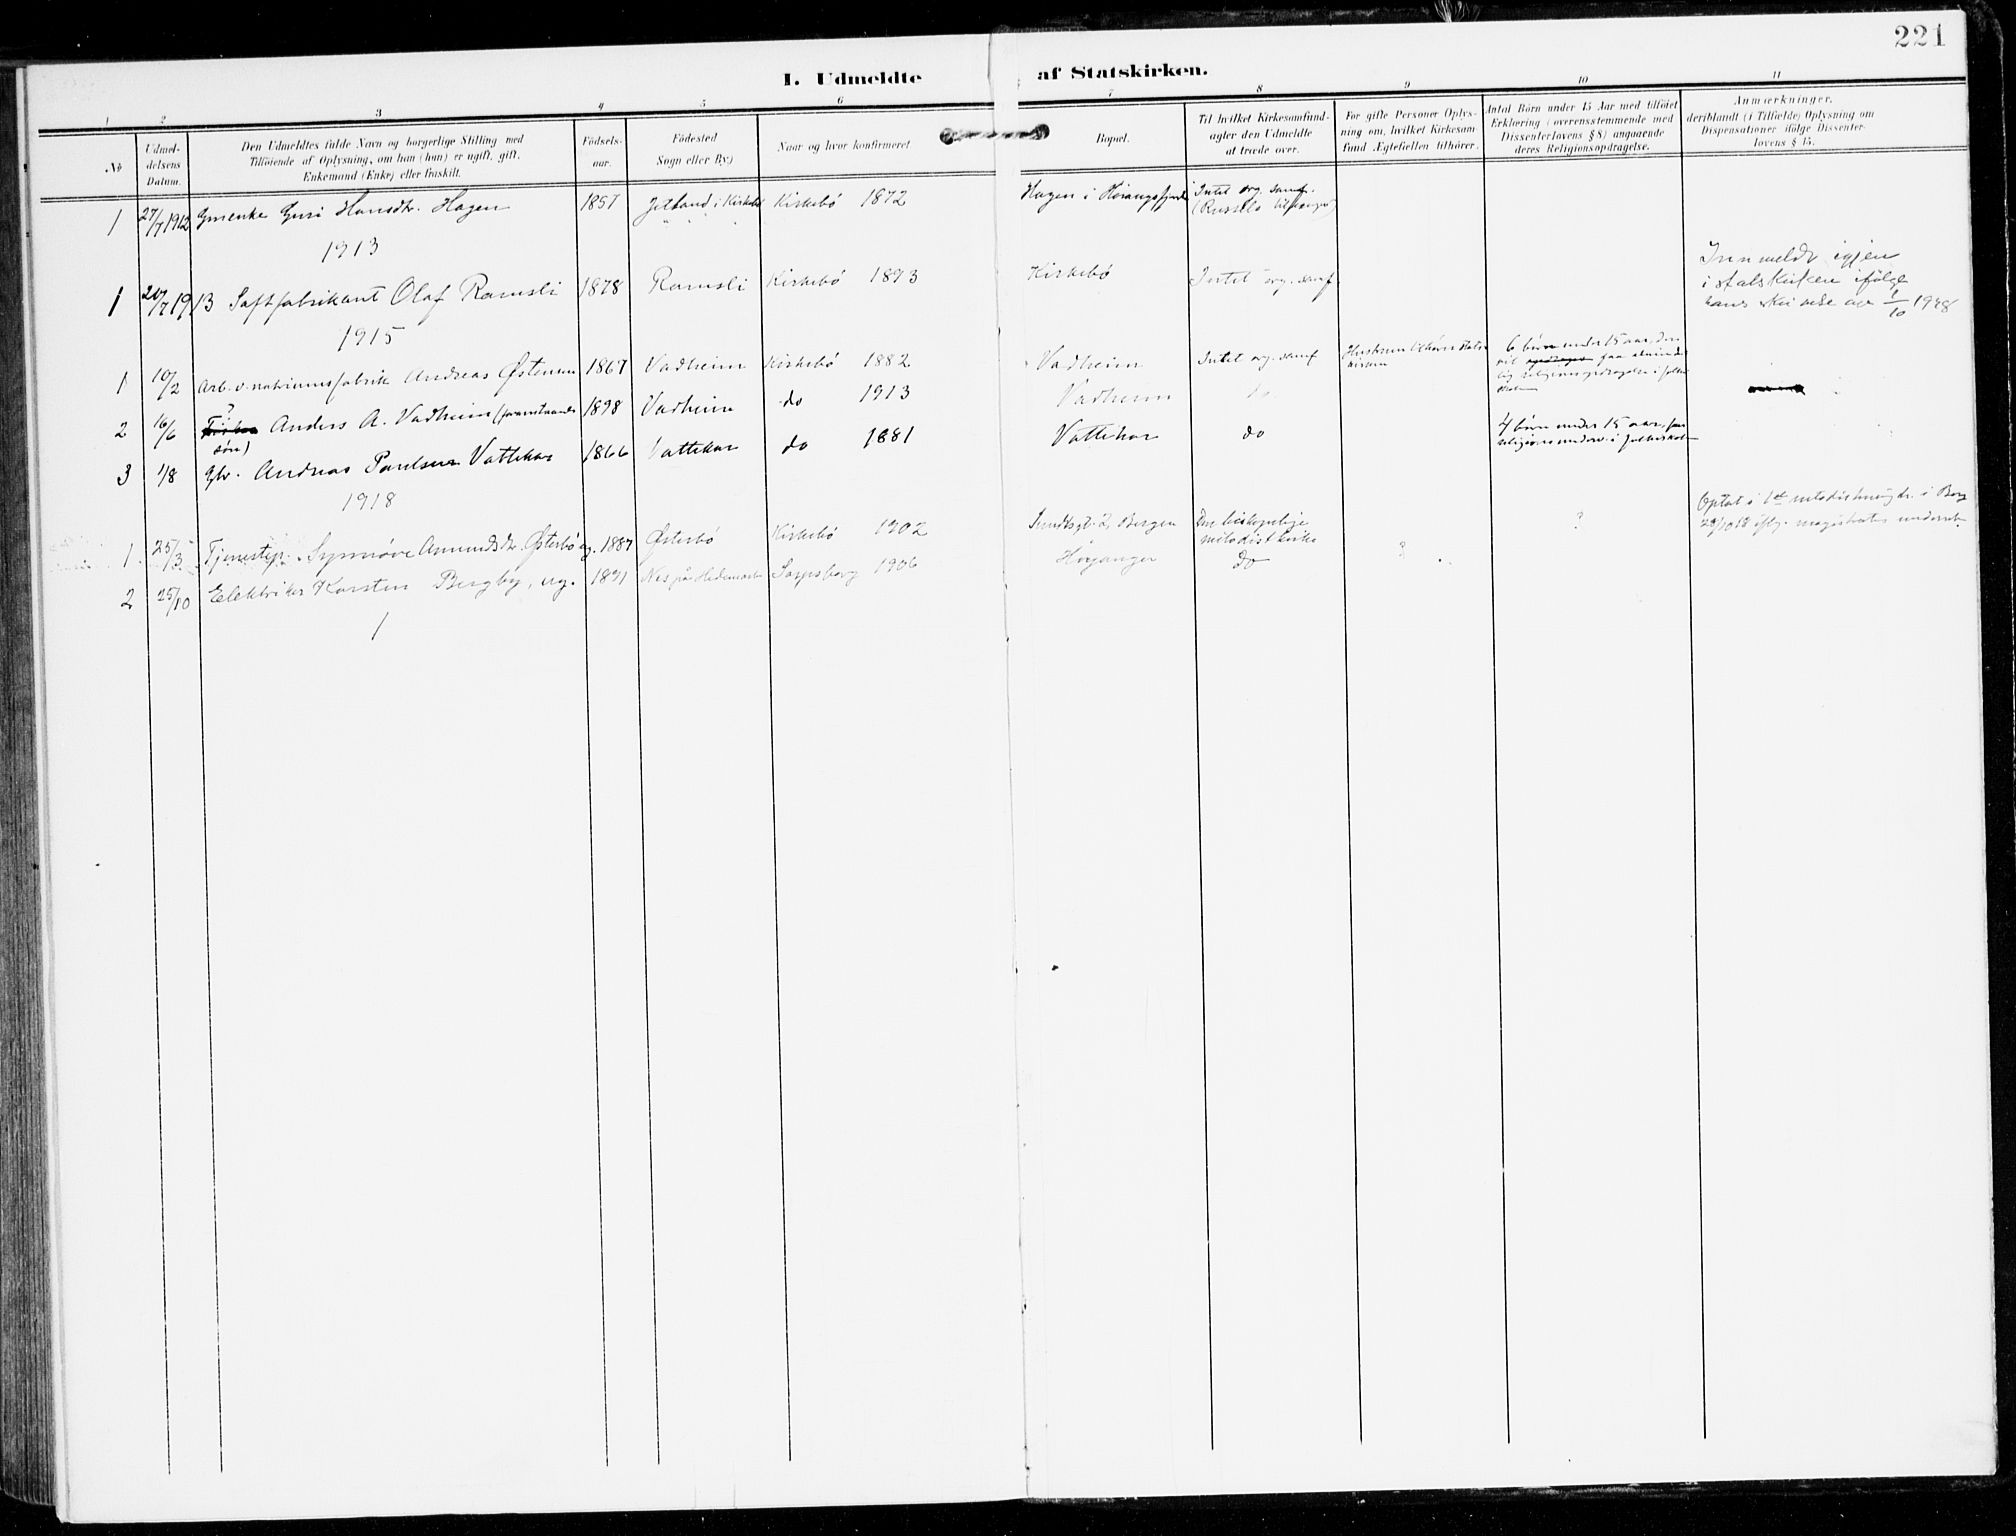 221
I. Udmeldte af Statskirken.
1 2 3 4 5 6 7 8 9 10 11
No
Udmeldelsens Datum.
Den Udmeldtes fulde Navn og borgerlige Stilling med
Tilföiende af Oplysning, om han (hun) er ugift, gift,
Enkemand (Enke) eller fraskilt.
Födselsaar.
Födested
Sogn eller By.)
Naar og hvor konfirmeret
Bopæl.
Til hvilket Kirkesamfund
agter den Udmeldte
at træde over.
For gifte Personer Oplys-
ning om, hvilket Kirkesam-
fund Ægtefællen tilhörer.
Antal Börn under 15 Aar med tilföiet
Erklæring (overensstemmende med
Dissenterlovens § 8) angaaende
deres Religionsopdragelse.
Anmærkninger,
deriblandt (i Tilfælde) Oplysning om
Dispensationer ifölge Dissenter-
lovens § 15.
1 27/7 1912 Gmenke Guri Hansdtr. Hagen 1857 Jetland i Kirkebö Kirkebö 1872 Hagen i Höiangsfjord Intet org. samf.
(Russels tilhænger)
1913
1 20/7 1913 Saftfabrikant Olaf Ramsli 1878 Ramsli Kirkebö 1893 Kirkebö Intet org. samf. Innmeldt igjen
i statskirken ifölge
hans skrivelse av 1/10 1948
1915
1 10/2 Arb. v. natriumsfabrik Andreas Östensen 1867 Vadheim Kirkebö 1882 Vadheim Intet org. samf Hustruen tilhörer stats-
kirken 6 börn under 15 aar, den
vil faa almindelig religionsopdragelse i folke-
skolen
2 16/6 ? Anders A. Vadheim (foranstaaendes
sön) 1898 Vadheim do 1913 Vadheim do
3 1/8 Gbr. Andreas Paulsen Vattekar 1866 Vattekar do 1881 Vattekar do 4 börn under 15 aar, faar
religionsunderv. i folkeskolen
1918
1 25/3 Tjenestep. Synnöve Amundsdr. Österbö ug. 1887 Österbö Kirkebö 1902 Sundtsgt. 2, Bergen Den biskopelige
metodistkirke ? Optat i 1st metodistmenigh. i Berg
2 25/10 Elektriker Karsten Bergby, ug. 1891 Nes på Hedemark Sarpsborg 1906 Höyanger Do ?